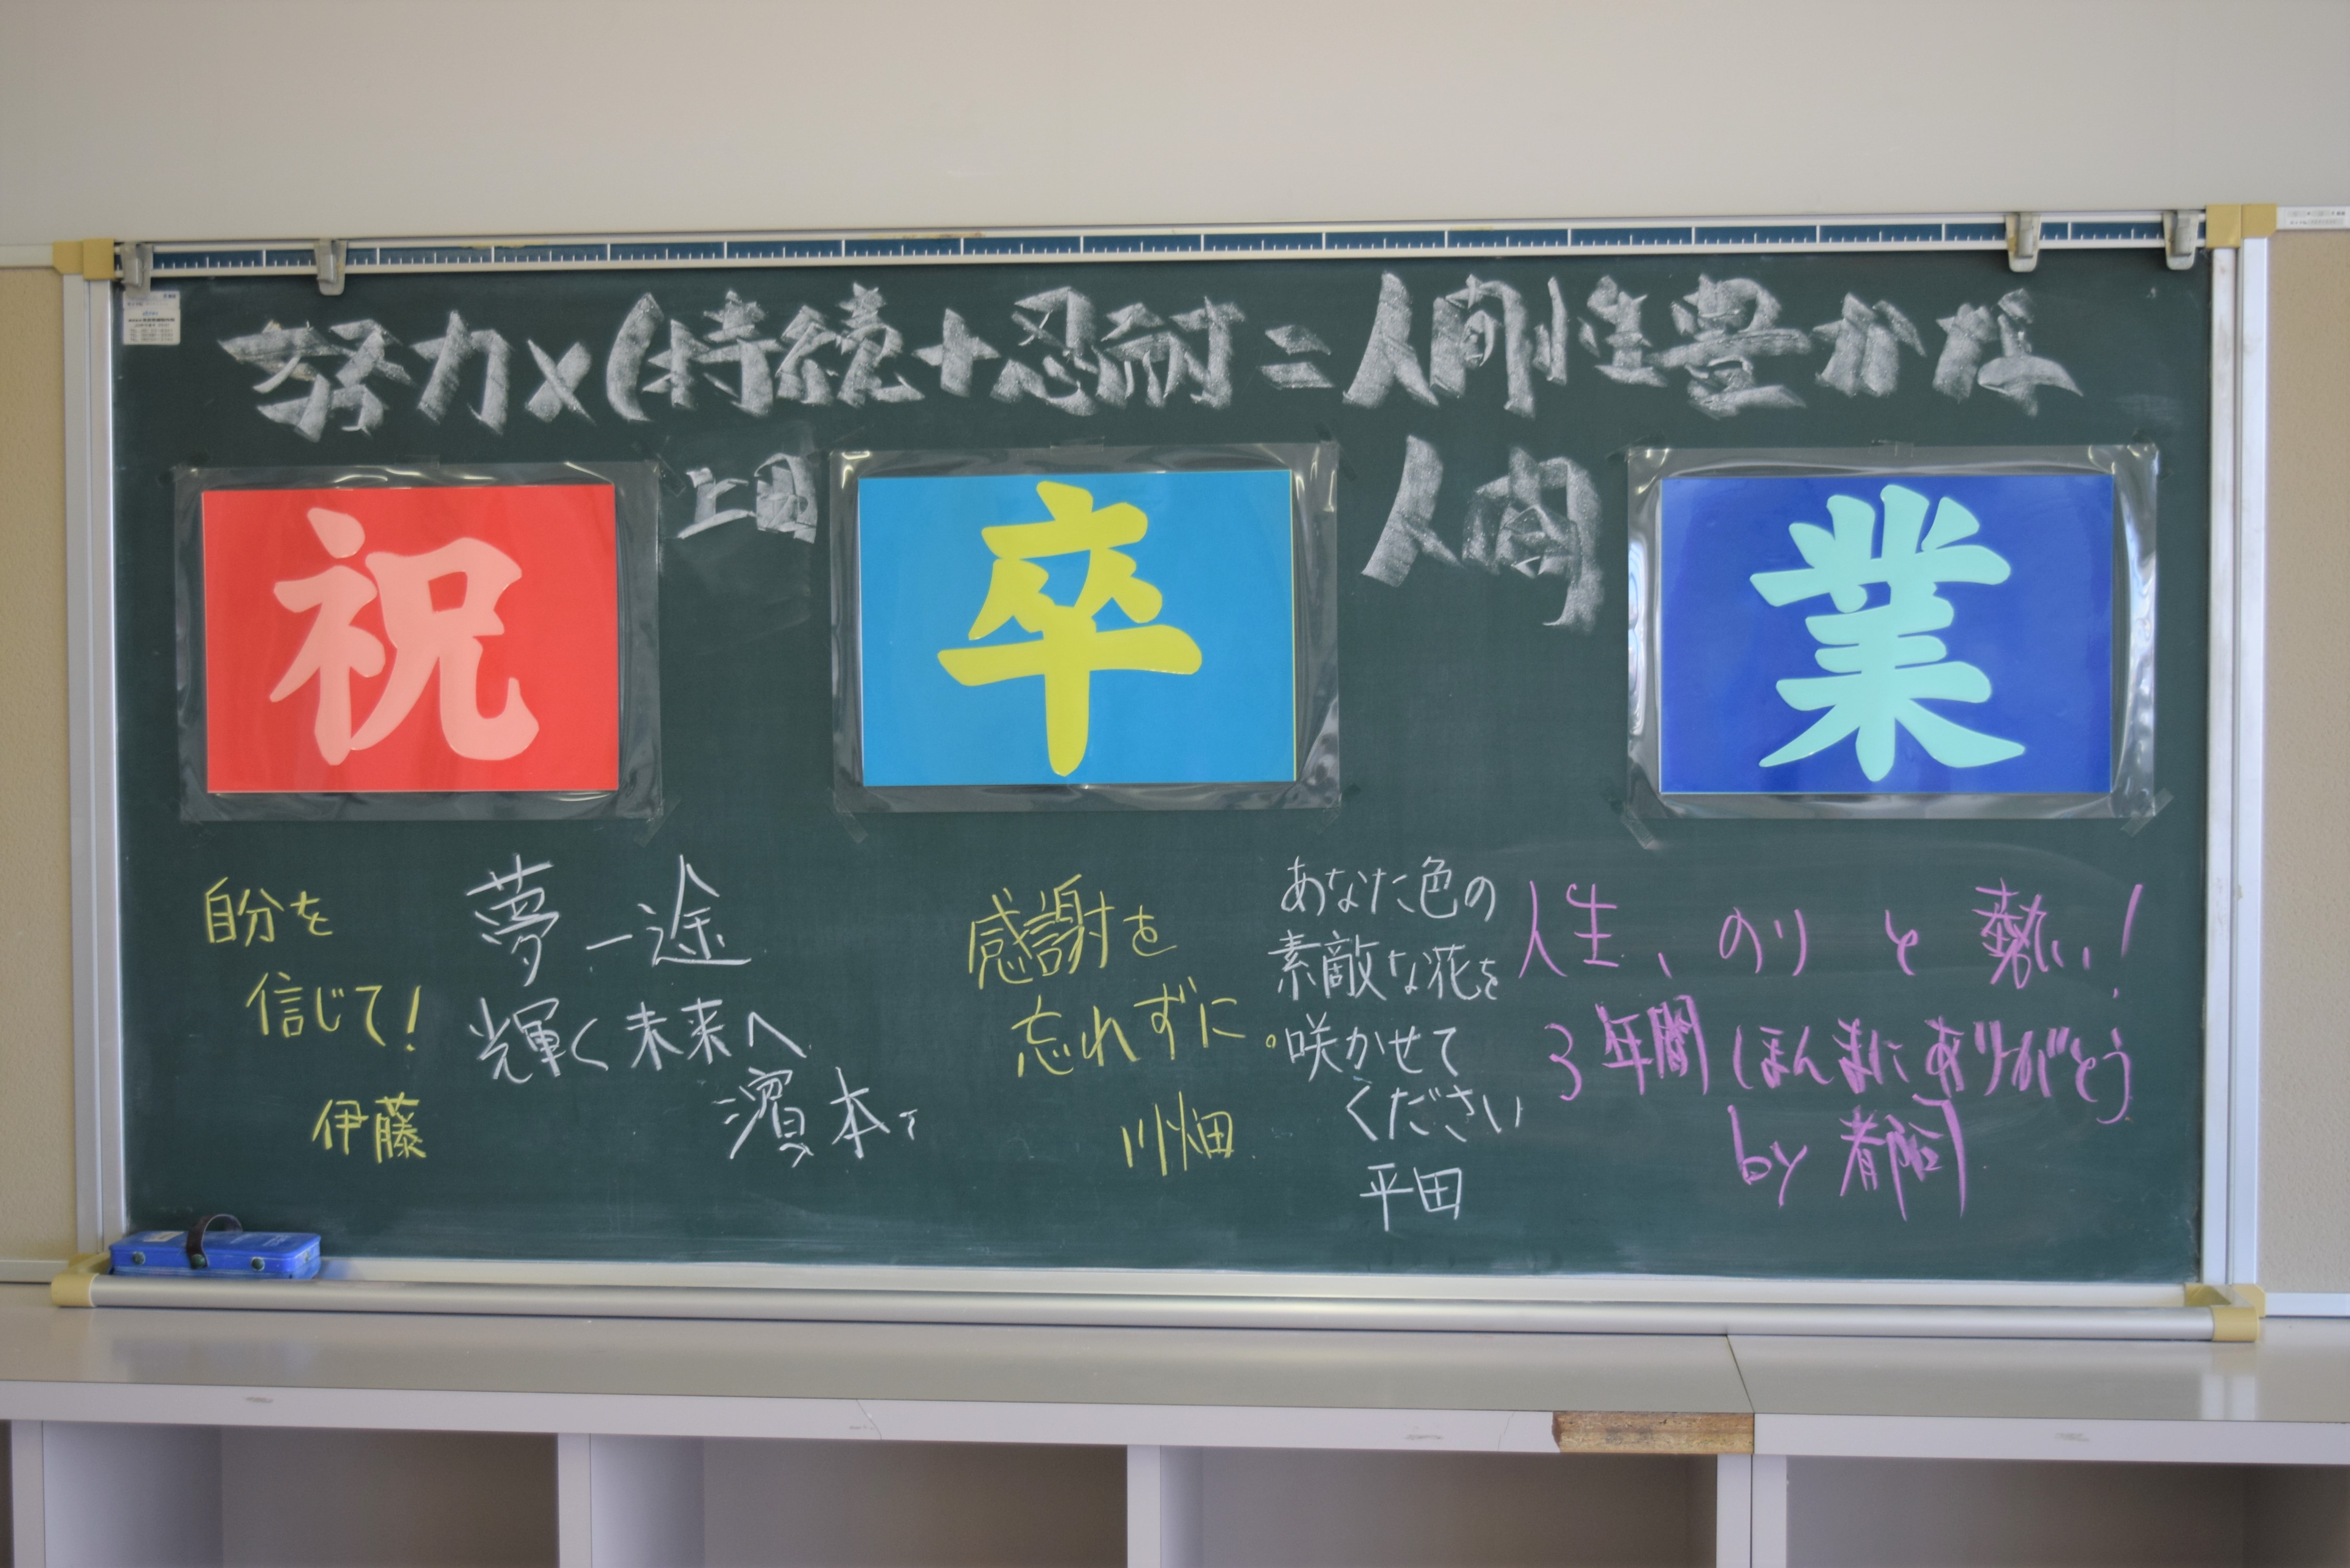 努力×(持続+忍耐=人間性豊かな
人間
上田
祝 卒 業
自分を
信じて!
伊藤
夢一途
輝く未来へ
濱本
感謝を
忘れずに。
川畑
あなた色の
素敵な花を
咲かせて
ください
平田
人生、のりと熱い!
3年間ほんまにありがとう
by